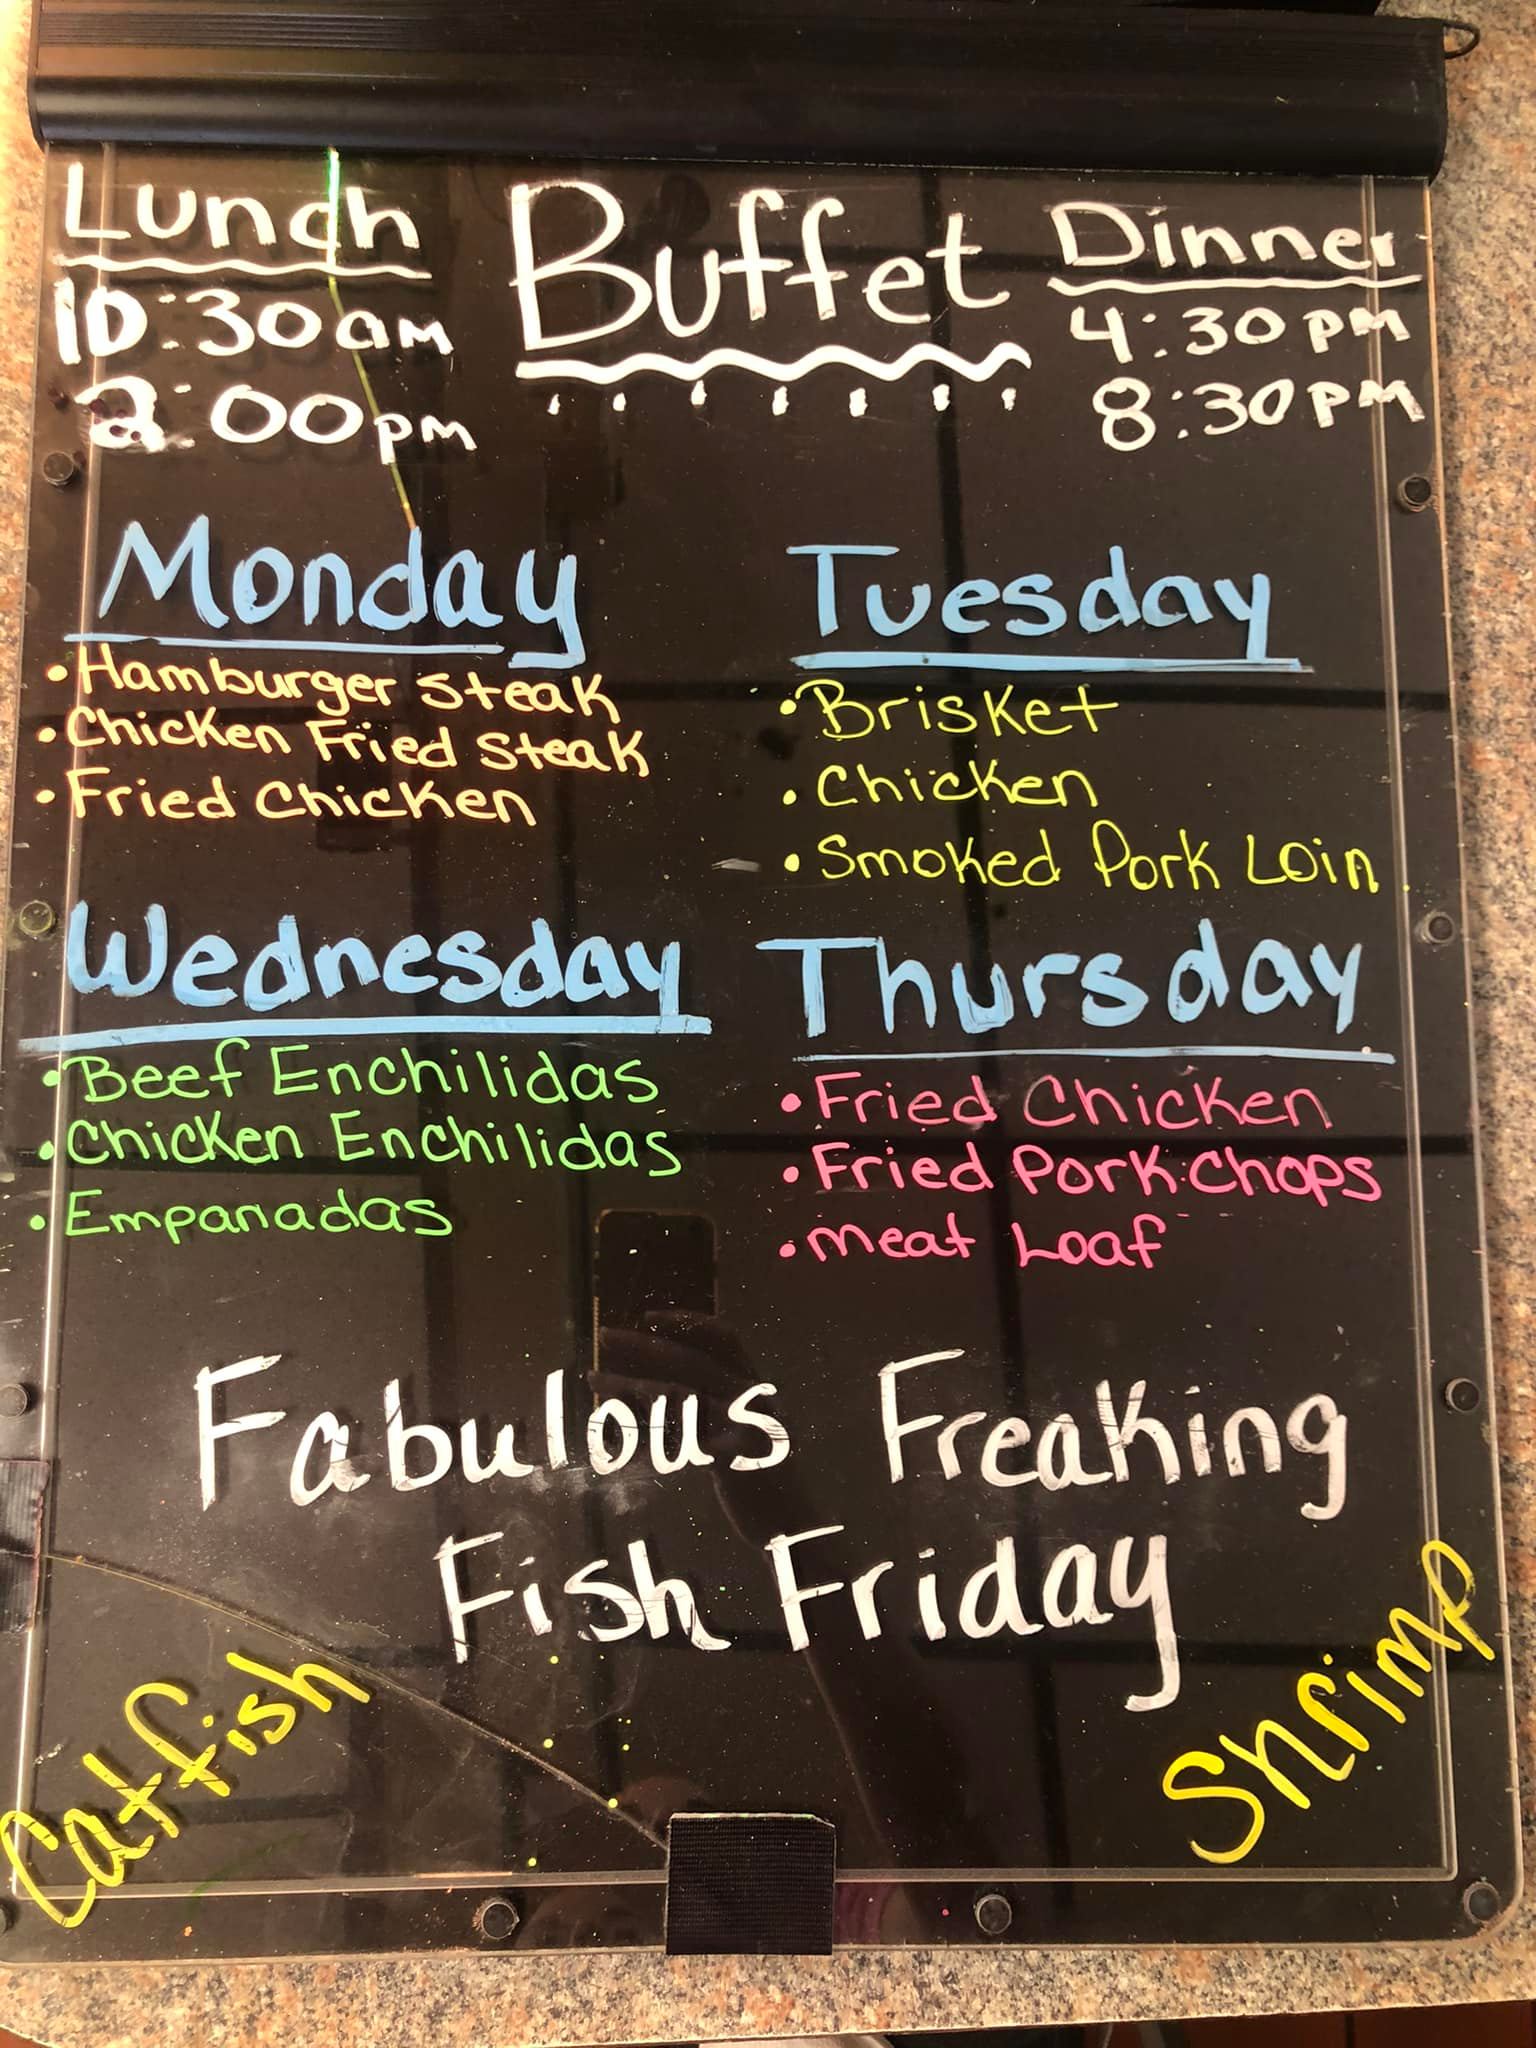 Lunch
10:30am
2:00pm
Buffet
Dinner
4:30pm
8:30pm
Monday
• Hamburger Steak
• Chicken Fried Steak
• Fried Chicken
Tuesday
• Brisket
• Chicken
• Smoked Pork Loin
Wednesday
• Beef Enchilidas
• Chicken Enchilidas
• Empanadas
Thursday
• Fried Chicken
• Fried Pork Chops
• Meat Loaf
Fabulous Freaking
Fish Friday
Catfish
Shrimp